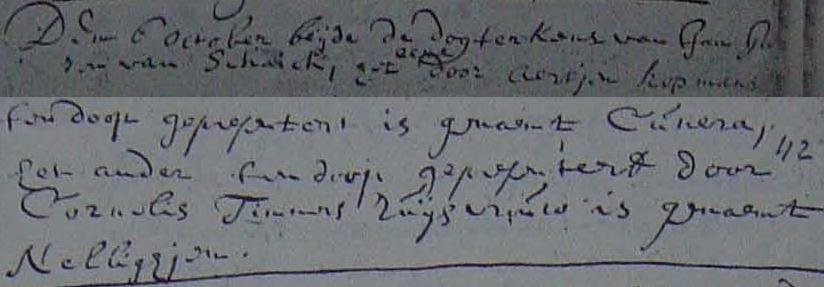 Den 6 october beijde de dogterkens van Jan
van Schaick, het eene door aertjen kopmans
ten doop gepresenteert is genaemt Cunera,
het ander ten doop gepresenteert door 112
Cornelis Timmers huijsvrouw is genaemt
Nelligjen.